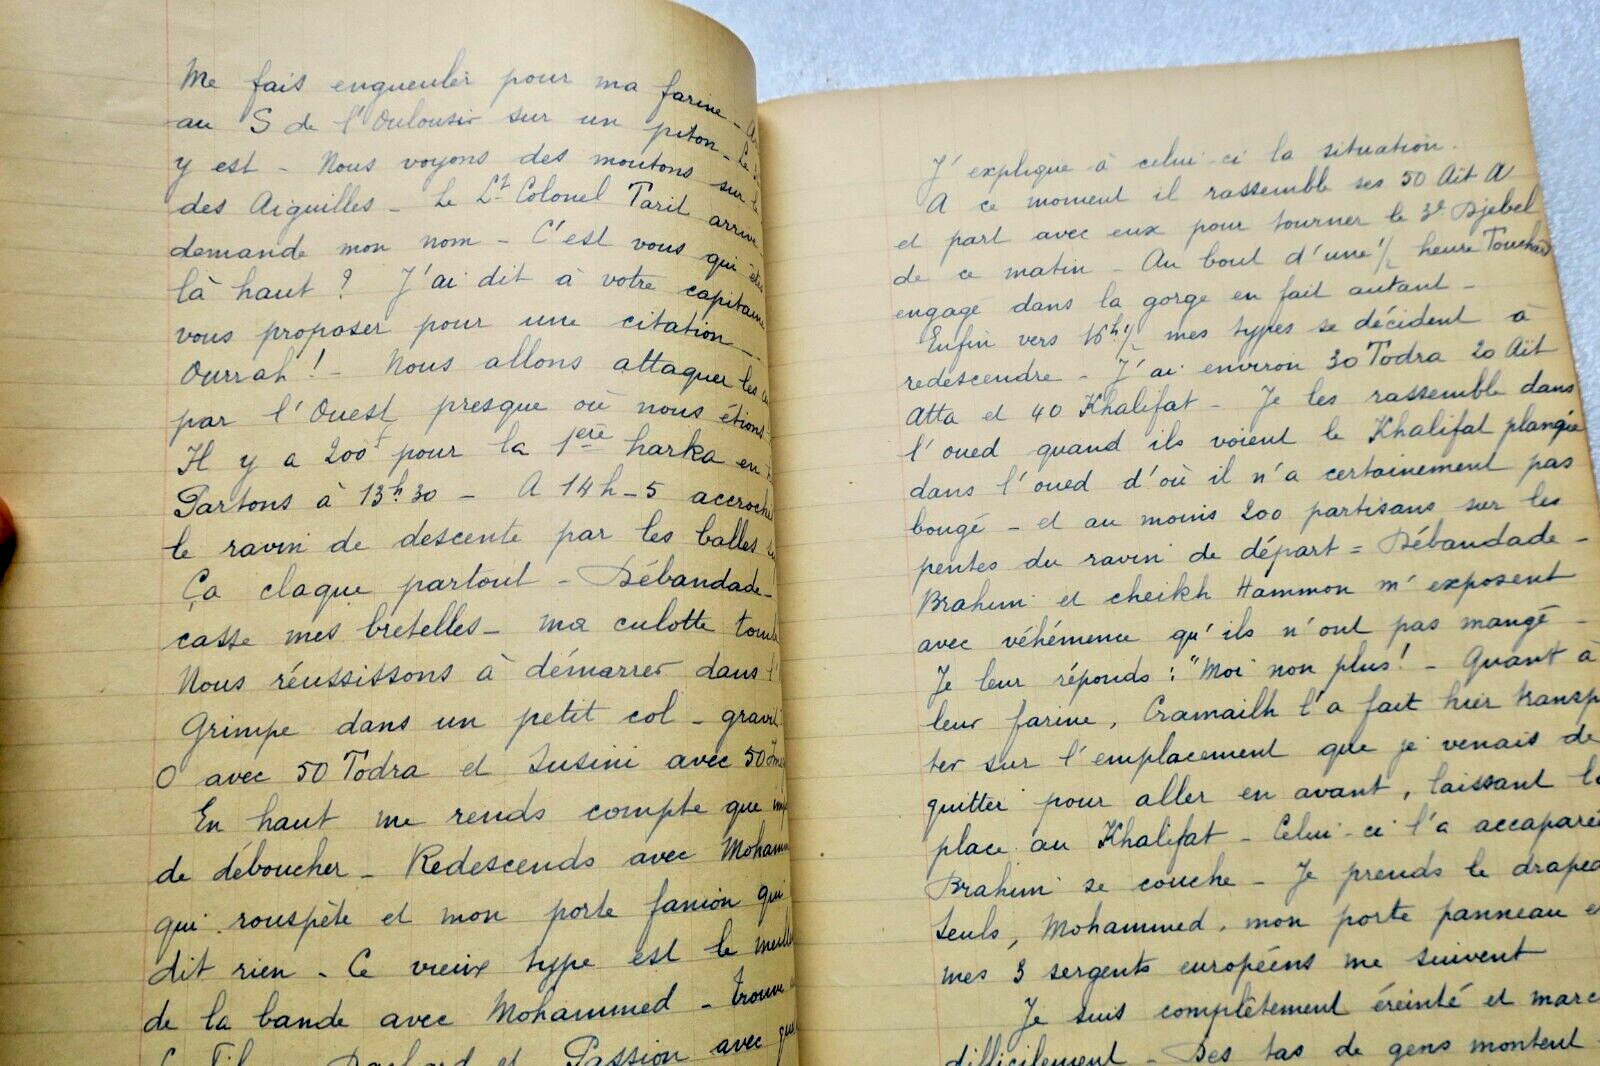 Me fais engueuler pour ma farine -
au S de l'Oulousir sur un piton - Le
y est - Nous voyons des moutons sur le
des Aiguilles - Le Lt Colonel Tarit arrive
demande mon nom - C'est vous qui êtes
là haut ? J'ai dit à votre capitaine
vous proposer pour une citation -
Ourrah ! - Nous allons attaquer les
par l'Ouest presque où nous étions
Il y a 200f pour la 1ère harka en
Partons à 13h30 - A 14h-5 accroché
le ravin de descente par les balles
Ça claque partout - Débandade -
casse mes bretelles - ma culotte tombe
Nous réussissons à démarrer dans l'
Grimpe dans un petit col - gravit
O avec 50 Todra et Susini avec 50
En haut me rends compte que
de déboucher - Redescends avec Moham
qui rouspète et mon porte fanion qui
dit rien - Ce vieux type est le meill
de la bande avec Mohammed - trouve
et Passion avec
J'explique à celui-ci la situation.
A ce moment il rassemble ses 50 Aït A
et part avec eux pour tourner le 3e Djebel
de ce matin - Au bout d'une 1/2 heure Touchard
engagé dans la gorge en fait autant -
Enfin vers 16h1/2 mes types se décident à
redescendre - J'ai environ 30 Todra 20 Aït
Atta et 40 Khalifat - Je les rassemble dans
l'oued quand ils voient le Khalifat planqué
dans l'oued d'où il n'a certainement pas
bougé - et au moins 200 partisans sur les
pentes du ravin de départ = Débandade -
Brahim et cheikh Hammon m'exposent
avec véhémence qu'ils n'ont pas mangé -
Je leur réponds : "Moi non plus ! - Quant à
leur farine, Cramailh l'a fait hier transp
ter sur l'emplacement que je venais de
quitter pour aller en avant, laissant la
place au Khalifat - Celui-ci l'a accaparée
Brahim se couche - Je prends le drapea
Seuls, Mohammed, mon porte panneau et
mes 3 sergents européens me suivent
Je suis complètement éreinté et marc
difficilement - Des tas de gens montent -